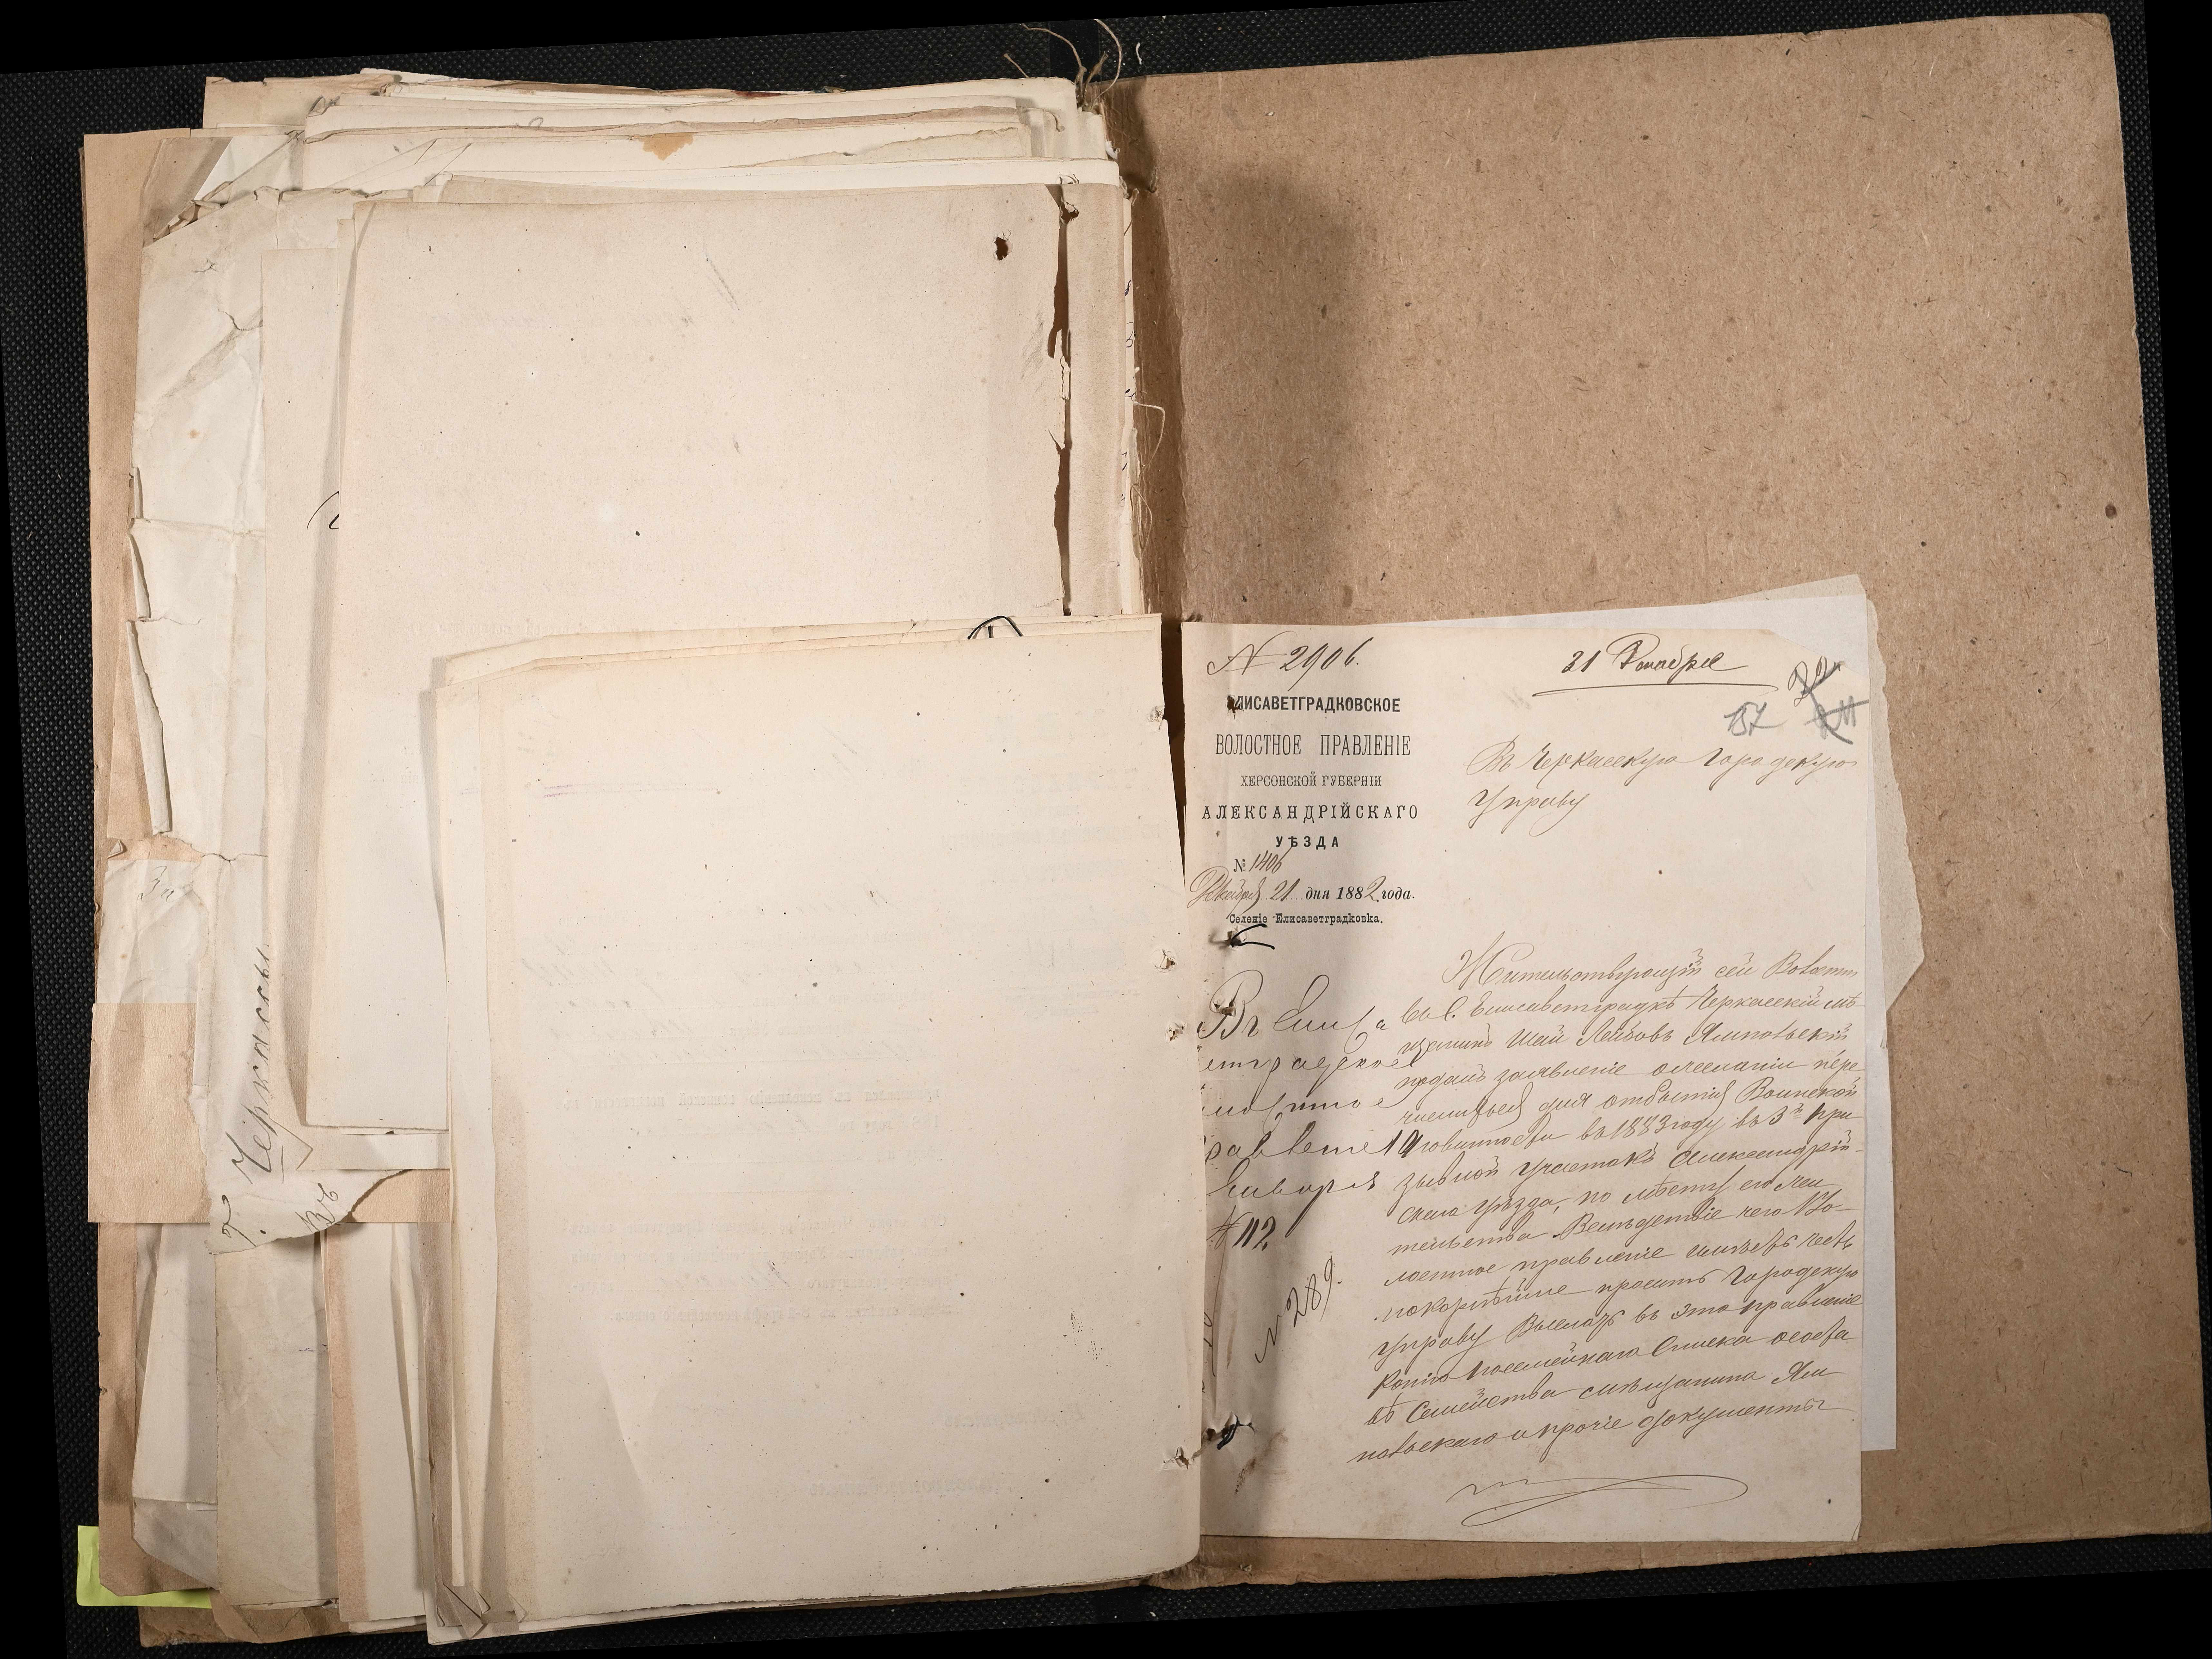 г. Черкассы
Въ
№ 2906.
31 Декабря
157
ЕЛИСАВЕТГРАДКОВСКОЕ
ВОЛОСТНОЕ ПРАВЛЕНІЕ
ХЕРСОНСКОЙ ГУБЕРНІИ
АЛЕКСАНДРІЙСКАГО
УѢЗДА
№ 1406
Декабря 21 дня 1882 года.
Селеніе Елисаветградковка.
Въ Черкасскую Городскую
Управу
Жительствующій сей Волости
въ С. Елисаветградкѣ Черкасскій мѣ
щанинъ Шая Лейбовъ Ямпольскій
подалъ заявленіе о желаніи пере
числиться для отбытія Воинской
повинности въ 1883 году въ 3й при
зывной участокъ Александрій
скаго уѣзда, по мѣсту его жи
тельства. Вслѣдствіе чего Во-
лостное правленіе имѣетъ честь
покорнѣйше просить Городскую
управу Выслать въ это правленіе
Копію посемейнаго Списка о составѣ
Семейства мѣщанина Ям
польскаго и прочіе документы
№ 112
№ 289.